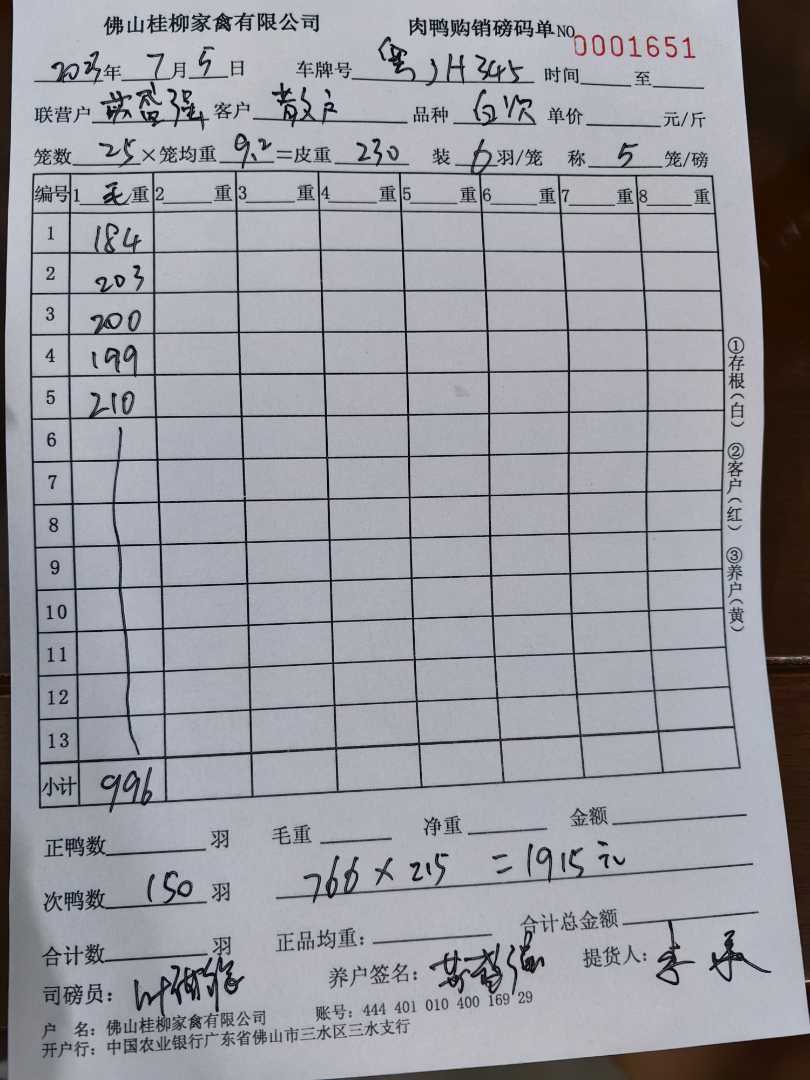 佛山桂柳家禽有限公司 肉鸭购销磅码单 NO 0001651
2023年 7月 5日 车牌号 粤JH345 时间 至
联营户 黄盛强 客户 散户 品种 白次 单价 元/斤
笼数 25 ×笼均重 9.2 =皮重 230 装 6 羽/笼 称 5 笼/磅
编号 1 毛 重 2 重 3 重 4 重 5 重 6 重 7 重 8 重
1 184
2 203
3 200
4 199
5 210
6
7
8
9
10
11
12
13
小计 996
①存根(白) ②客户(红) ③养户(黄)
正鸭数 羽 毛重 净重 金额
次鸭数 150 羽 766 × 215 = 1915元
合计数 羽 正品均重: 合计总金额
司磅员: 养户签名: 提货人: 李
户 名: 佛山桂柳家禽有限公司 账号: 444 401 010 400 169 29
开户行: 中国农业银行广东省佛山市三水区三水支行